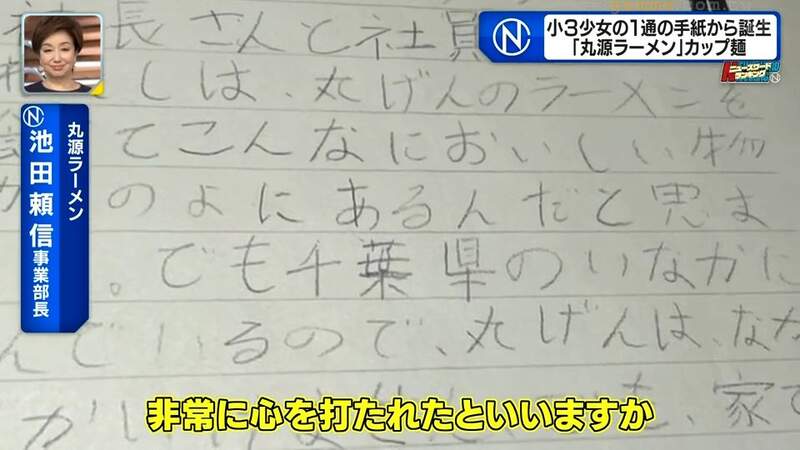 小3少女の1通の手紙から誕生
「丸源ラーメン」カップ麺
ニュースワード
ランキング
丸源ラーメン
池田頼信 事業部長
長さんと社員
しは、丸げんのラーメンを
てこんなにおいしい物
のよにあるんだと思ま
。でも千葉県のいなかに
んでいるので、丸げんは、なか
家で
非常に心を打たれたといいますか